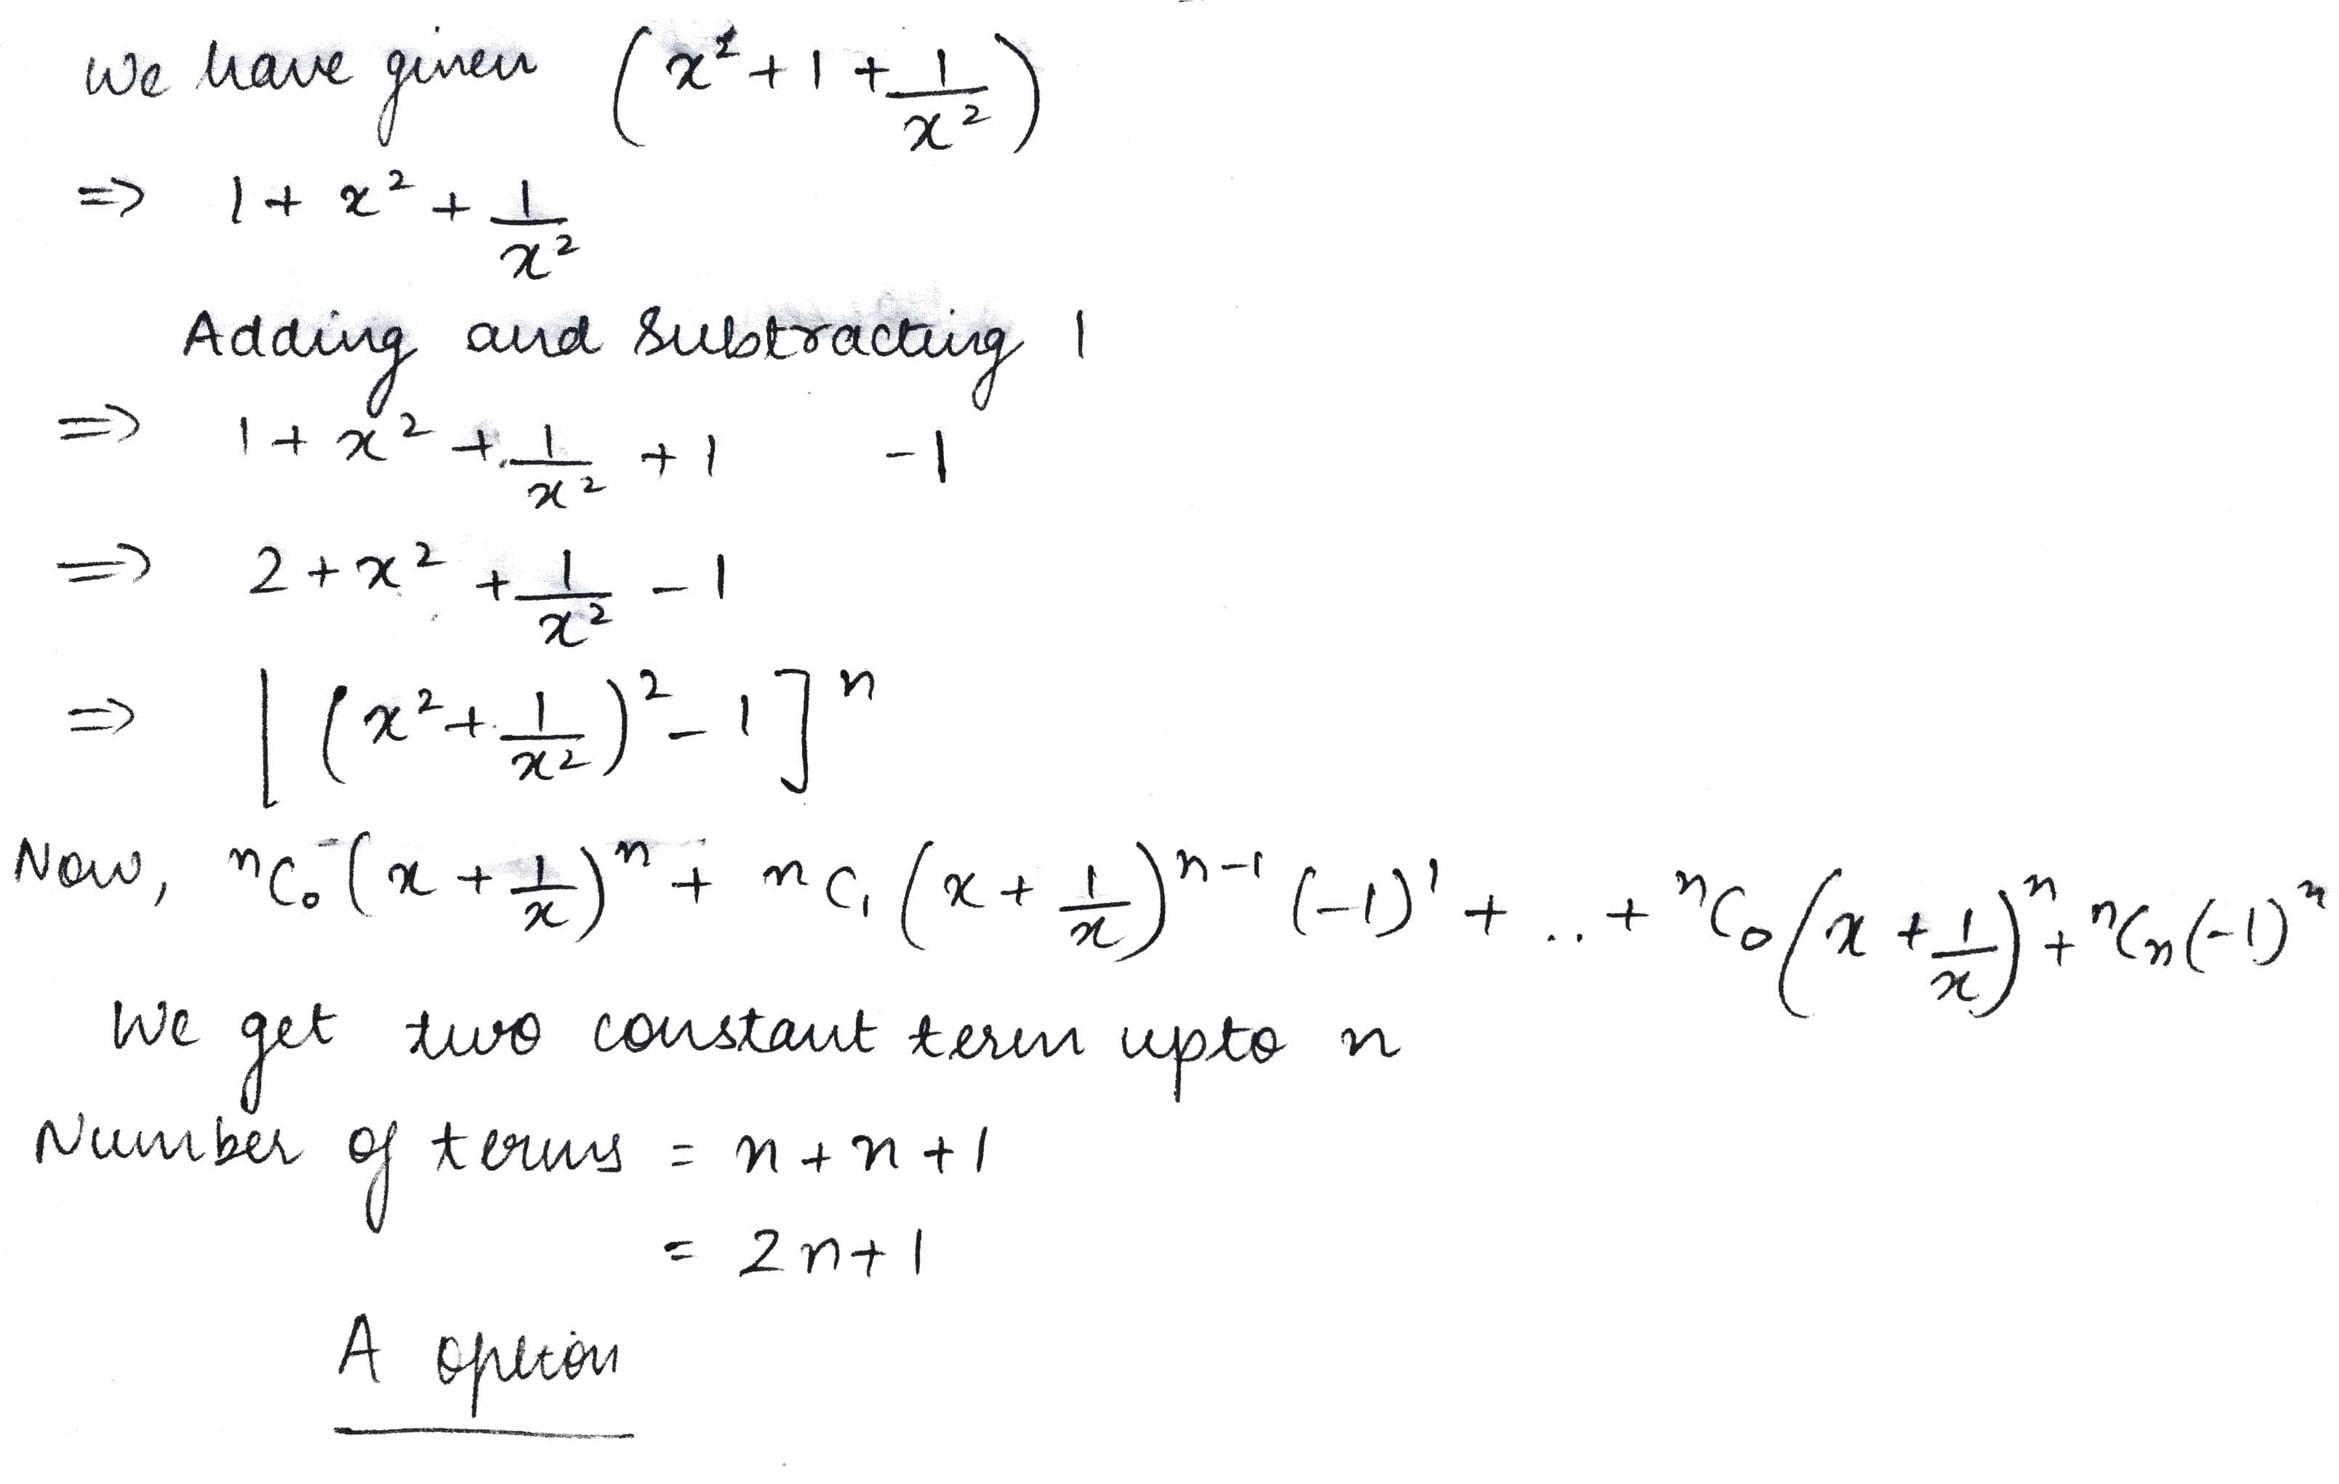 We have given (x² + 1 + 1/x²)
=> 1 + x² + 1/x²
Adding and Subtracting 1
=> 1 + x² + 1/x² + 1 -1
=> 2 + x² + 1/x² - 1
=> [(x² + 1/x²)² - 1]ⁿ
Now, ⁿC₀(x + 1/x)ⁿ + nC₁(x + 1/x)ⁿ⁻¹(-1)¹ + .. + ⁿC₀(x + 1/x)ⁿ + ⁿCₙ(-1)ⁿ
We get two constant term upto n
Number of terms = n + n + 1
= 2n + 1
A option